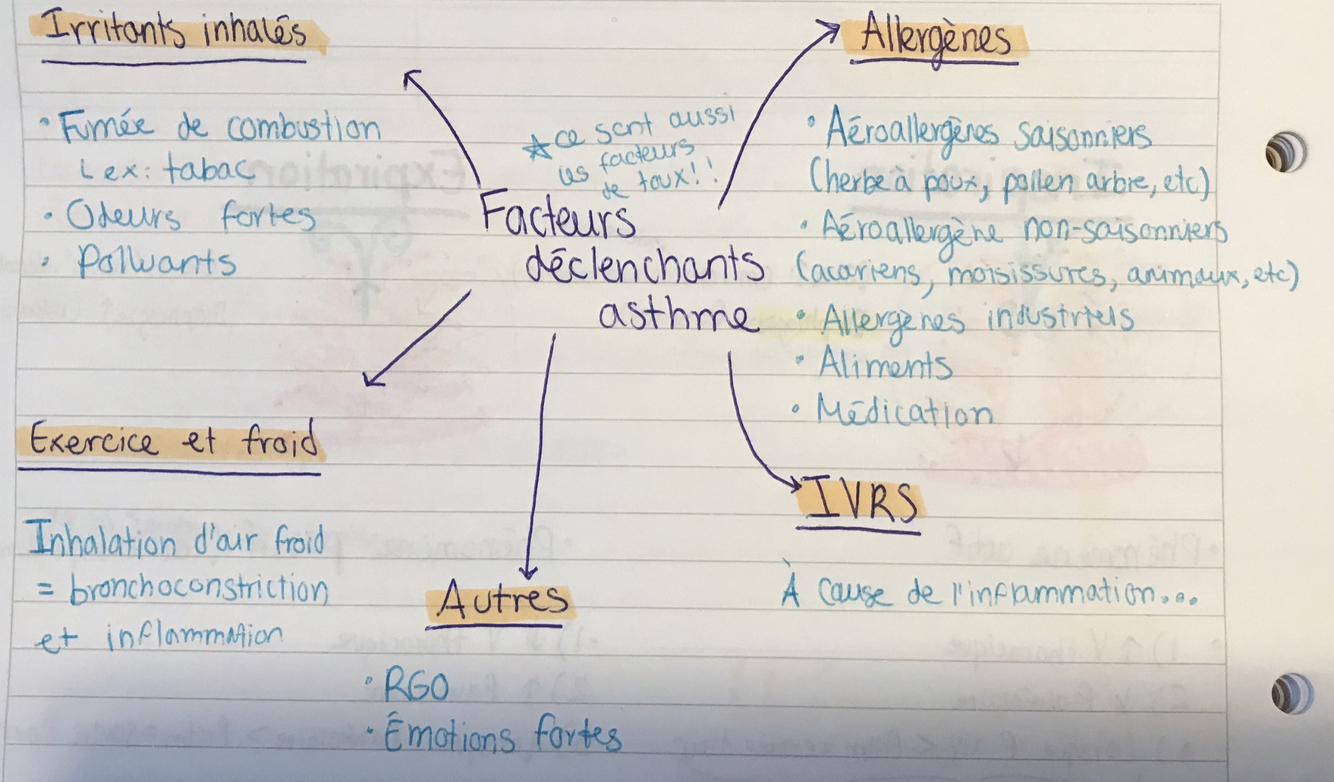 Irritants inhalés
• Fumée de combustion
L ex: tabac
• Odeurs fortes
• Polluants
☆ ce sont aussi
les facteurs
de toux!!
Facteurs
déclenchants
asthme
Allergènes
• Aéroallergènes saisonniers
(herbe à poux, pollen arbre, etc)
• Aéroallergène non-saisonniers
(acariens, moisissures, animaux, etc)
• Allergènes industriels
• Aliments
• Médication
Exercice et froid
Inhalation d'air froid
= bronchoconstriction
et inflammation
Autres
• RGO
• Émotions fortes
IVRS
À cause de l'inflammation...